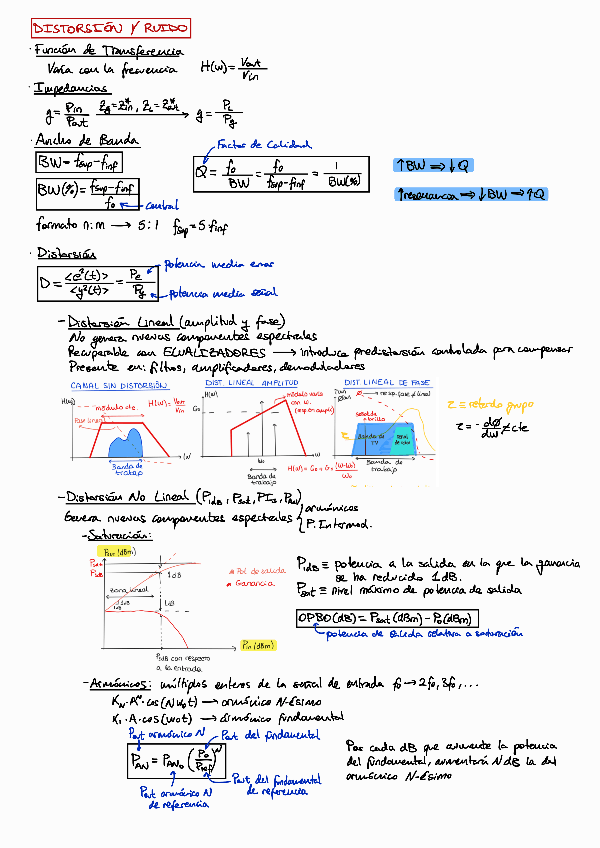 DISTORSIÓN Y RUIDO
· Función de Transferencia
Varía con la frecuencia H(w) = Vout/Vin
· Impedancias
g = Pin/Pout Zg = Z*in, ZL = Z*out → g = PL/Pg
· Ancho de Banda
Factor de Calidad
BW = fsup - finf
Q = fo/BW = fo/(fsup - finf) = 1/BW(%)
↑BW ⇒ ↓Q
BW(%) = (fsup - finf)/fo ← central
↑resonancia ⇒ ↓BW ⇒ ↑Q
formato n:m → 5:1 fsup = 5 finf
· Distorsión
D = <e²(t)>/<y²(t)> = Pe/Py
potencia media error
potencia media señal
- Distorsión Lineal (amplitud y fase)
No genera nuevas componentes espectrales
Recuperable con ECUALIZADORES → introduce predistorsión controlada para compensar
Presente en: filtros, amplificadores, demoduladores
CANAL SIN DISTORSIÓN
DIST. LINEAL AMPLITUD
DIST. LINEAL DE FASE
|H(w)|
módulo cte.
H(w) = Vout/Vin
Fase lineal
Banda de trabajo
w
|H(w)|
Go
módulo varía con w.
Wo
Banda de trabajo
H(w) = Go + G1 (w-wo)/wo
Banda de TV
Banda de trabajo
w
τ ≡ retardo grupo
τ = - dØ/dw ≠ cte
- Distorsión No Lineal (P1dB, Psat, PI3, PAN)
Genera nuevas componentes espectrales { armónicos
P. Intermod.
- Saturación:
Pout (dBm)
Psat
P1dB
1dB
Zona lineal
1dB
Pin (dBm)
P1dB con respecto
a la entrada
• Pot. de salida
• Ganancia
P1dB ≡ potencia a la salida en la que la ganancia
se ha reducido 1dB.
Psat ≡ nivel máximo de potencia de salida
OPBO(dB) = Psat (dBm) - Po(dBm)
potencia de salida relativa a saturación
- Armónicos: múltiplos enteros de la señal de entrada fo → 2fo, 3fo, ...
KN·A^N·cos(Nwot) → armónico N-ésimo
K1·A·cos(wot) → armónico fundamental
Pot armónico N
Pot del fundamental
PAN = PANo (Po/Pref)^N
Pot armónico N
de referencia
Pot del fundamental
de referencia
Por cada dB que aumente la potencia
del fundamental, aumentará N dB la del
armónico N-ésimo